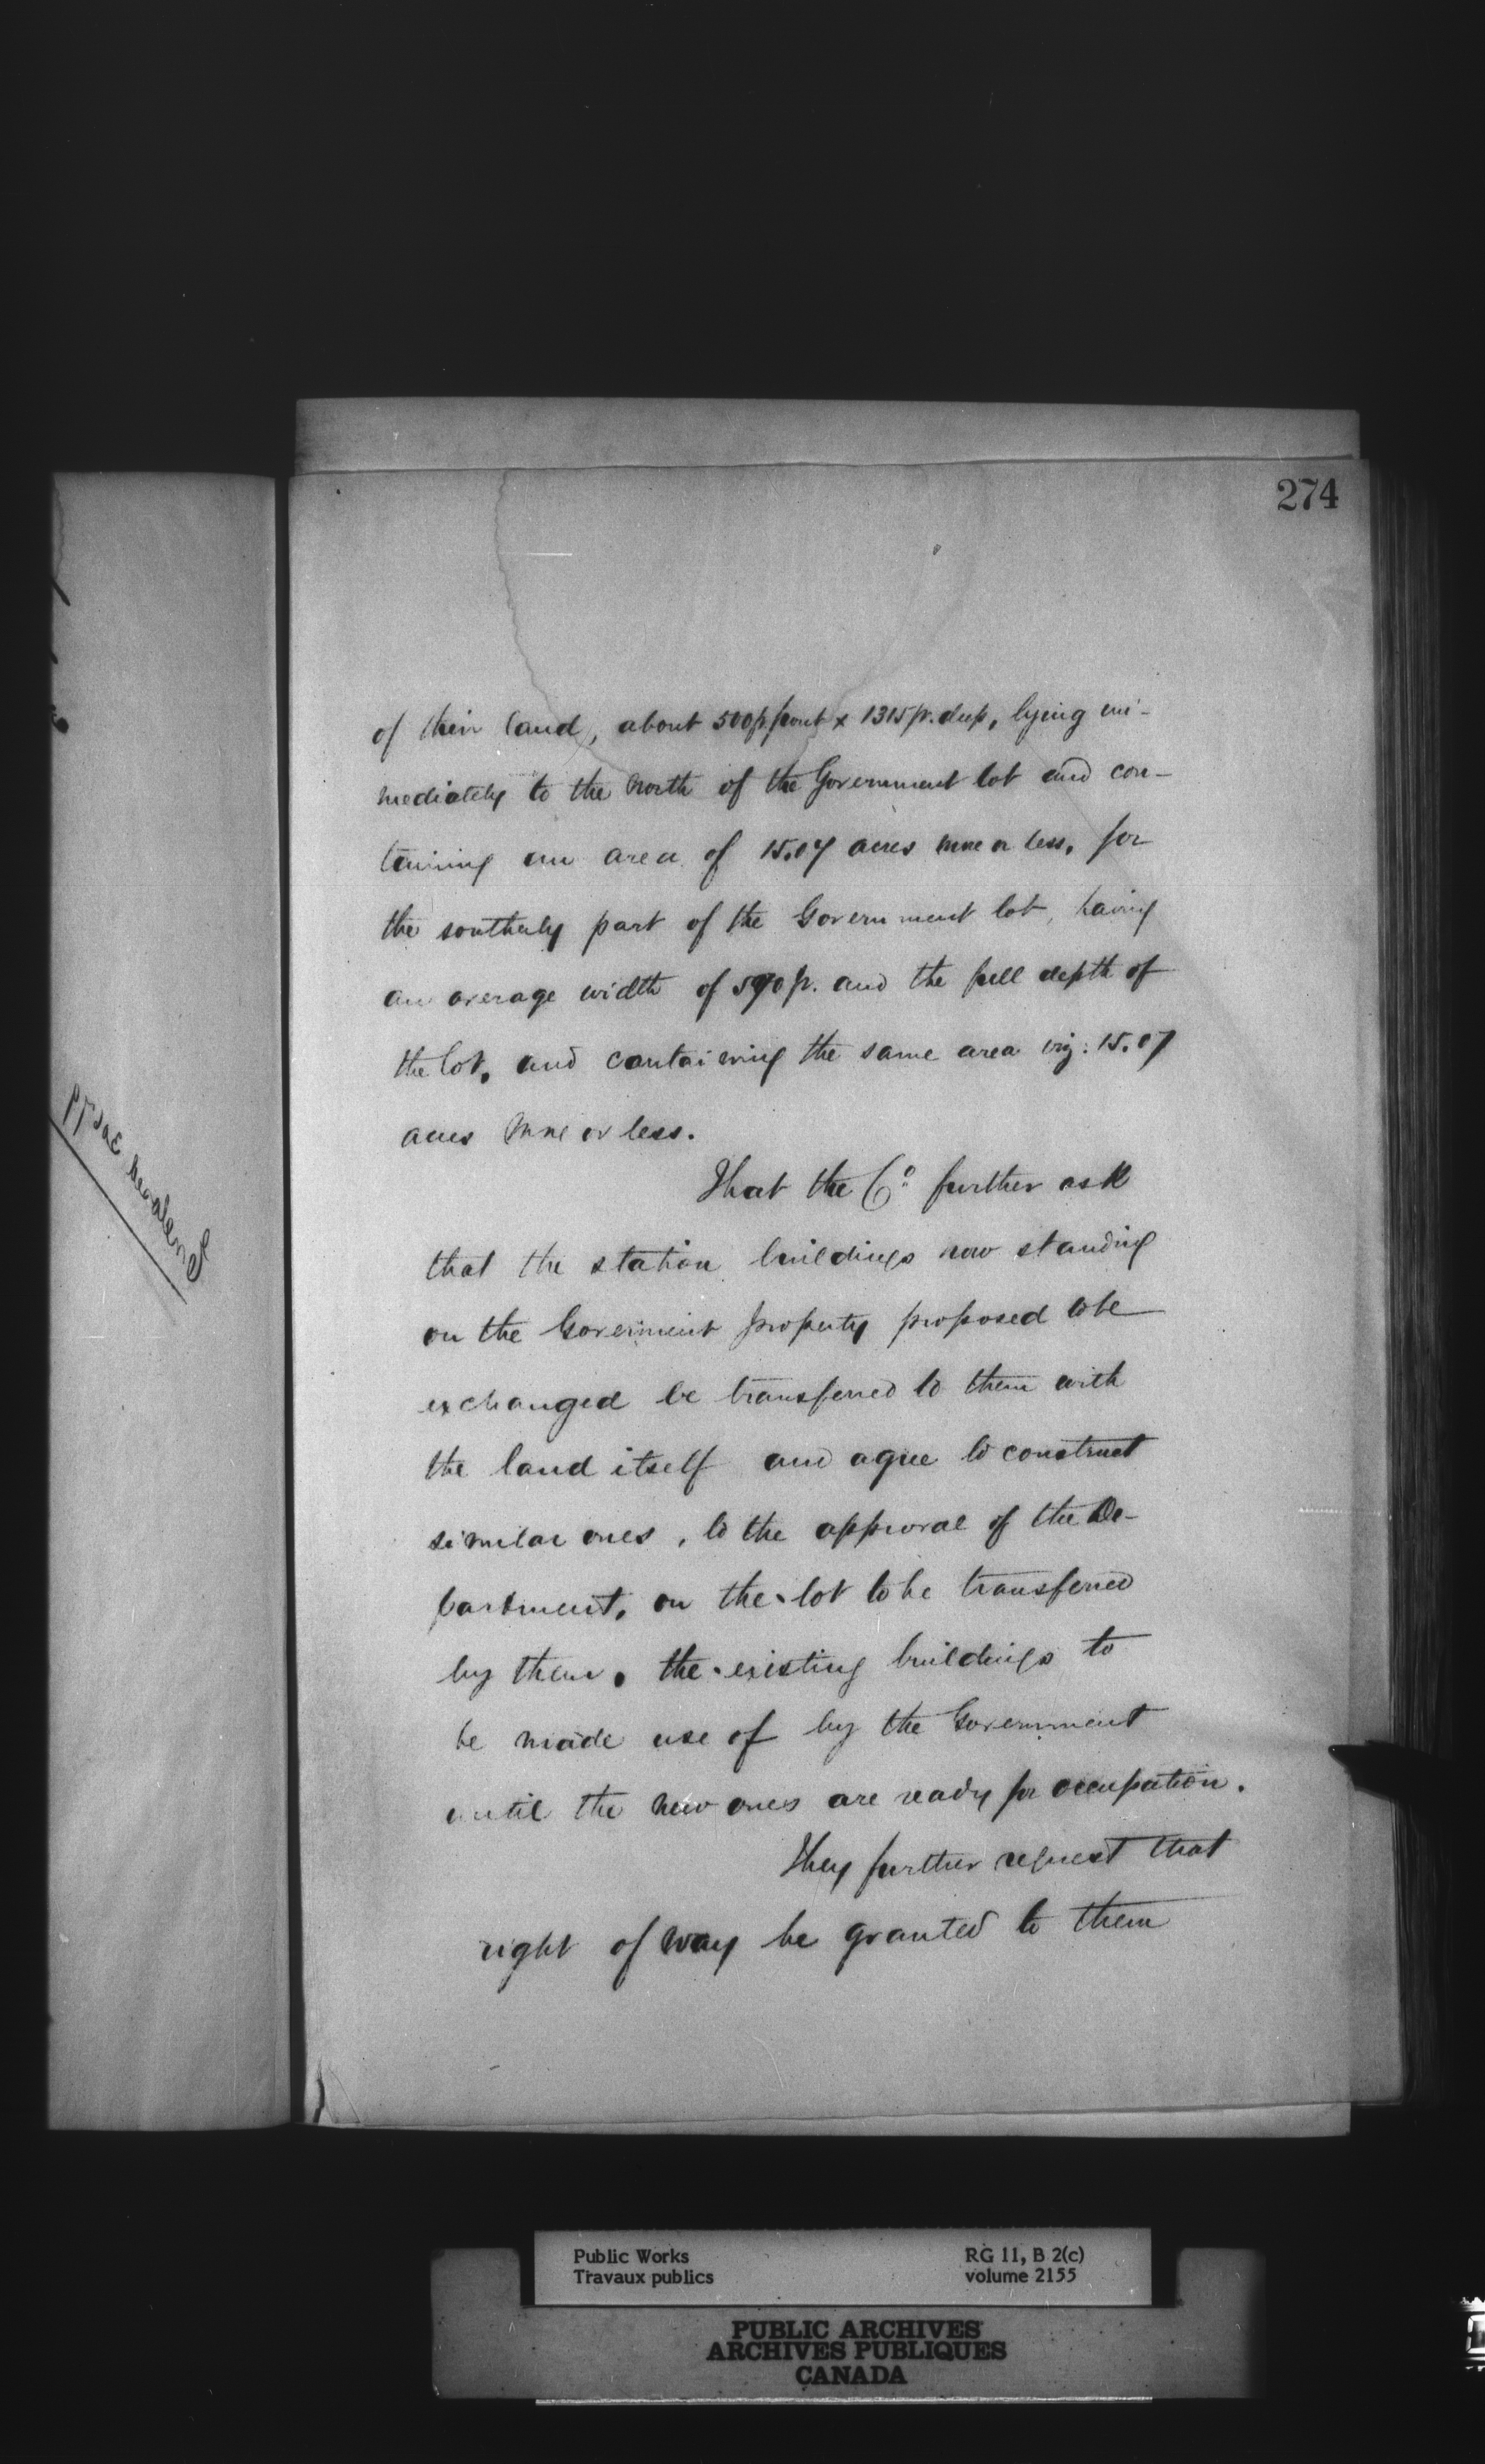 274
of their land, about 500 ft. front x 1315 ft. deep, lying im-
mediately to the North of the Government lot and con-
taining an area of 15.07 acres more or less, for
the southerly part of the Government lot, having
an average width of 590 ft. and the full depth of
the lot, and containing the same area viz: 15.07
acres more or less.
That the Co. further ask
that the station buildings now standing
on the Government property proposed to be
exchanged be transferred to them with
the land itself and agree to construct
similar ones, to the approval of the De-
partment, on the lot to be transferred
by them, the existing buildings to
be made use of by the Government
until the new ones are ready for occupation.
They further request that
right of way be granted to them
Public Works
Travaux publics
RG 11, B 2(c)
volume 2155
PUBLIC ARCHIVES
ARCHIVES PUBLIQUES
CANADA